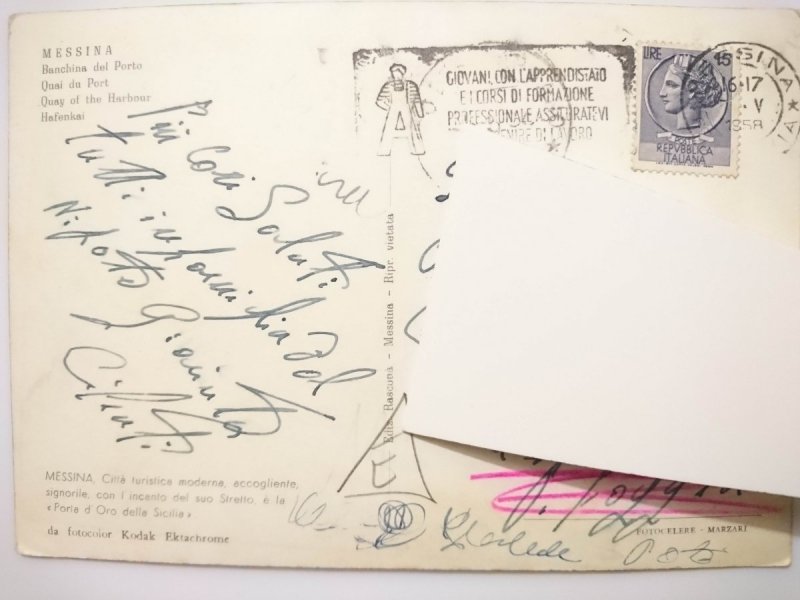 MESSINA
Banchina del Porto
Quai du Port
Quay of the Harbour
Hafenkai
GIOVANI, CON L'APPRENDISTATO
E I CORSI DI FORMAZIONE
PROFESSIONALE ASSICURATEVI
DI LAVORO
LIRE 15
16-17
V
1958
REPVBBLICA
ITALIANA
Più Cari Saluti
tutti in famiglia dal
Nipote
Ediz. Rascona - Messina - Ripr. vietata
MESSINA, Città turistica moderna, accogliente,
signorile, con l'incanto del suo Stretto, è la
«Porta d'Oro della Sicilia»
da fotocolor Kodak Ektachrome
FOTOCELERE - MARZARI